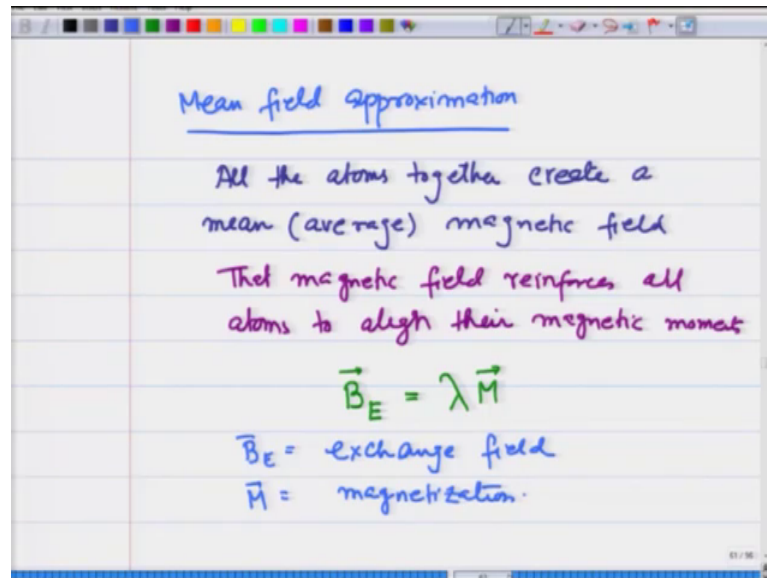 Mean field approximation
All the atoms together create a
mean (average) magnetic field
That magnetic field reinforces all
atoms to align their magnetic moments
B⃗_E = λ M⃗
B⃗_E = exchange field
M⃗ = magnetization.
61 / 96